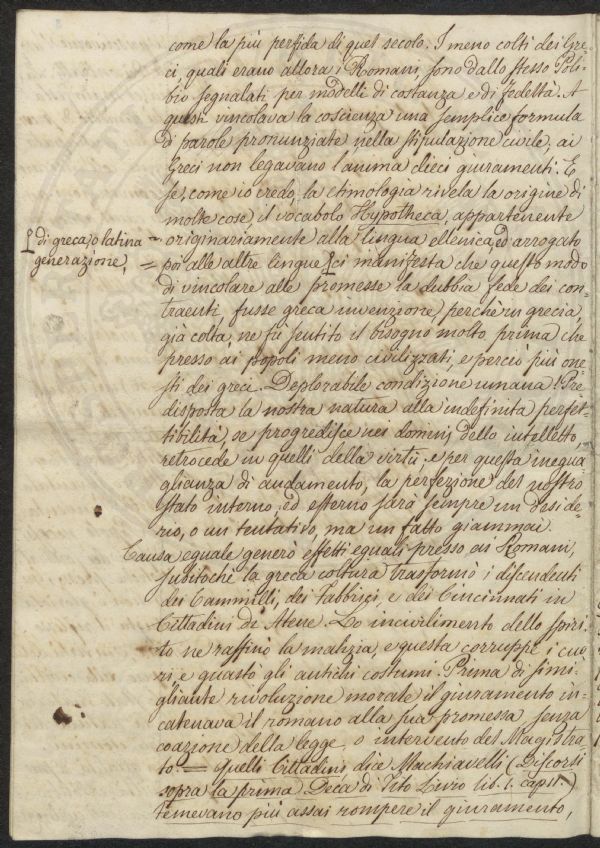 come la più perfida di quel secolo. I meno colti dei Gre-
ci, quali erano allora i Romani, sono dallo stesso Poli-
bio segnalati per modelli di costanza e di fedeltà. A
questi vincolava la coscienza una semplice formula
di parole pronunziate nella stipulazione civile, ai
Greci non legavano l'anima dieci giuramenti. E
se, come io credo, la etimologia rivela la origine di
molte cose il vocabolo Hypotheca, appartenente
originariamente alla lingua ellenica, ed arrogato
poi alle altre lingue ci manifesta che questo modo
di greca, o latina =
generazione, =
di vincolare alle promesse la dubbia fede dei con-
traenti, fusse greca invenzione, perchè in grecia,
già colta, ne fù sentito il bisogno molto prima che
presso ai popoli meno civilizzati, e perciò più one-
sti dei greci. Deplorabile condizione umana! Pre-
disposta la nostra natura alla indefinita perfet-
tibilità, se progredisce nei dominj dello intelletto,
retrocede in quelli della virtù, e per questa inegua-
glianza di andamento, la perfezione del nostro
stato interno, ed esterno sarà sempre un deside-
rio, o un tentativo, ma un fatto giammai.
Causa eguale generò effetti eguali presso ai Romani,
subitochè la greca coltura trasformò i discendenti
dei Cammilli, dei Fabbrizj, e dei Cincinnati in
Cittadini di Atene. Lo incivilimento dello spiri-
to ne raffinò la malizia, e questa corruppe i cuo-
ri, e guastò gli antichi costumi. Prima di simi-
gliante rivoluzione morale il giuramento in-
catenava il romano alla sua promessa senza
coazione della legge, o intervento del Magistra-
to. = Quelli Cittadini, dice Machiavelli (Discorsi
sopra la prima Deca di Tito Livio lib. 1. cap. 11.)
temevano più assai rompere il giuramento,